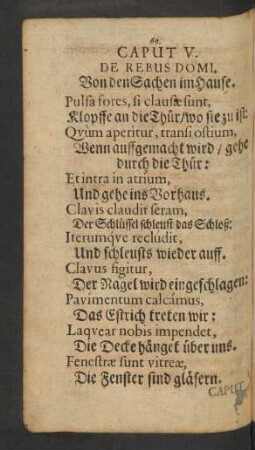 69.
CAPUT V.
DE REBUS DOMI.
Von den Sachen im Hause.
Pulsa fores, si clausæ sunt,
Klopffe an die Thür/wo sie zu ist:
Qvùm aperitur, transi ostium,
Wenn auffgemacht wird / gehe
durch die Thür:
Et intra in atrium,
Und gehe ins Vorhaus.
Clavis claudit seram,
Der Schlüssel schleust das Schloß:
Iterumq́ve recludit,
Und schleusts wieder auff.
Clavus figitur,
Der Nagel wird eingeschlagen:
Pavimentum calcámus,
Das Estrich treten wir:
Laqvear nobis impendet,
Die Decke hänget über uns.
Fenestræ sunt vitreæ,
Die Fenster sind gläsern.
CAPUT